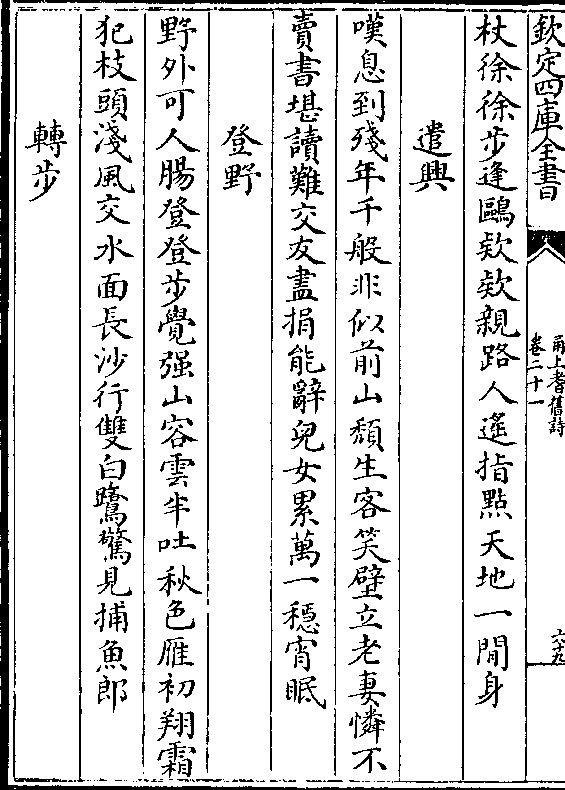 欽定四庫全書
甬上耆舊詩
卷二十一
六十九
杖徐徐步逢鷗欵欵親路人遙指點天地一閒身
遣興
嘆息到殘年千般非似前山頹生客笑壁立老妻憐不
賣書堪讀難交友盡捐能辭兒女累萬一穩宵眠
登野
野外可人腸登登步覺强山容雲半吐秋色雁初翔霜
犯枝頭淺風交水面長沙行雙白鷺驚見捕魚郎
轉步